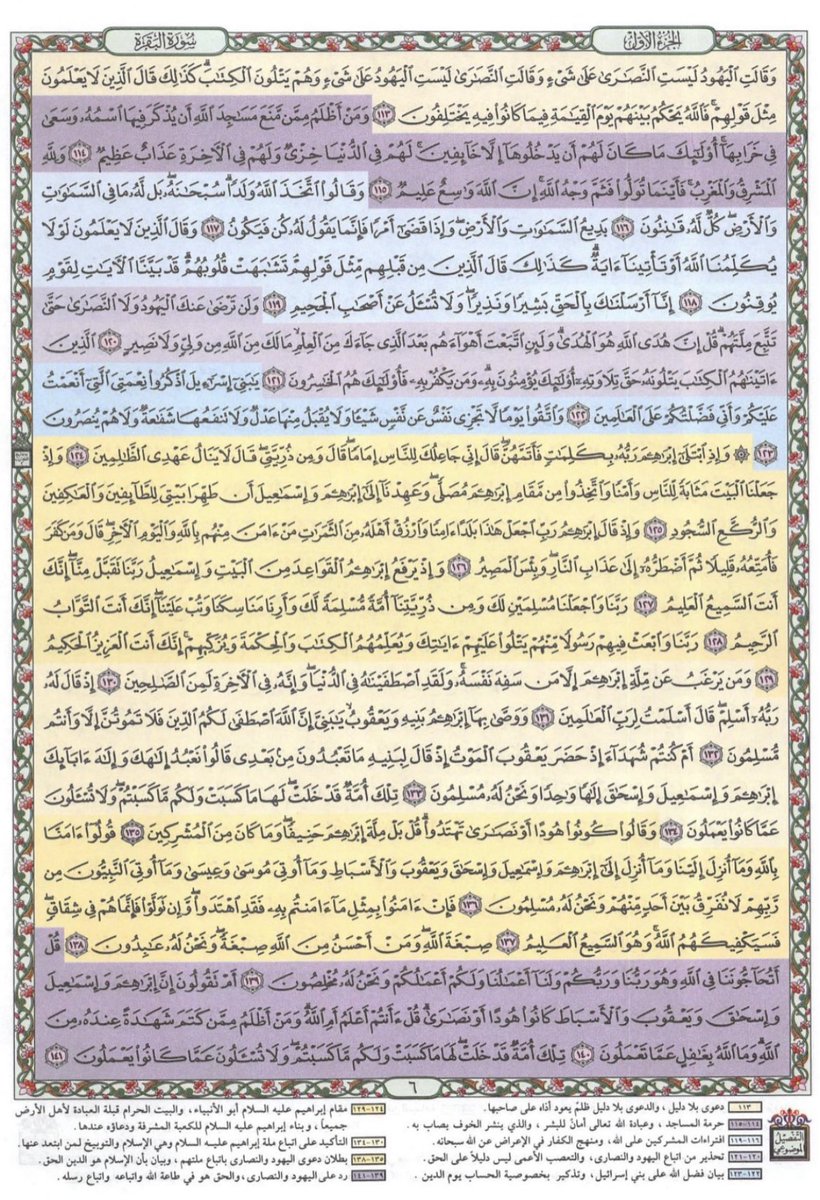 الجزء الأول
سورة البقرة
وَقَالَتِ الْيَهُودُ لَيْسَتِ النَّصَارَىٰ عَلَىٰ شَيْءٍ وَقَالَتِ النَّصَارَىٰ لَيْسَتِ الْيَهُودُ عَلَىٰ شَيْءٍ وَهُمْ يَتْلُونَ الْكِتَابَ ۗ كَذَٰلِكَ قَالَ الَّذِينَ لَا يَعْلَمُونَ
مِثْلَ قَوْلِهِمْ ۚ فَاللَّهُ يَحْكُمُ بَيْنَهُمْ يَوْمَ الْقِيَامَةِ فِيمَا كَانُوا فِيهِ يَخْتَلِفُونَ ١١٣ وَمَنْ أَظْلَمُ مِمَّن مَّنَعَ مَسَاجِدَ اللَّهِ أَن يُذْكَرَ فِيهَا اسْمُهُ وَسَعَىٰ
فِي خَرَابِهَا ۚ أُولَٰئِكَ مَا كَانَ لَهُمْ أَن يَدْخُلُوهَا إِلَّا خَائِفِينَ ۚ لَهُمْ فِي الدُّنْيَا خِزْيٌ وَلَهُمْ فِي الْآخِرَةِ عَذَابٌ عَظِيمٌ ١١٤ وَلِلَّهِ
الْمَشْرِقُ وَالْمَغْرِبُ ۚ فَأَيْنَمَا تُوَلُّوا فَثَمَّ وَجْهُ اللَّهِ ۚ إِنَّ اللَّهَ وَاسِعٌ عَلِيمٌ ١١٥ وَقَالُوا اتَّخَذَ اللَّهُ وَلَدًا ۗ سُبْحَانَهُ ۖ بَل لَّهُ مَا فِي السَّمَاوَاتِ
وَالْأَرْضِ ۖ كُلٌّ لَّهُ قَانِتُونَ ١١٦ بَدِيعُ السَّمَاوَاتِ وَالْأَرْضِ ۖ وَإِذَا قَضَىٰ أَمْرًا فَإِنَّمَا يَقُولُ لَهُ كُن فَيَكُونُ ١١٧ وَقَالَ الَّذِينَ لَا يَعْلَمُونَ لَوْلَا
يُكَلِّمُنَا اللَّهُ أَوْ تَأْتِينَا آيَةٌ ۗ كَذَٰلِكَ قَالَ الَّذِينَ مِن قَبْلِهِم مِّثْلَ قَوْلِهِمْ ۘ تَشَابَهَتْ قُلُوبُهُمْ ۗ قَدْ بَيَّنَّا الْآيَاتِ لِقَوْمٍ
يُوقِنُونَ ١١٨ إِنَّا أَرْسَلْنَاكَ بِالْحَقِّ بَشِيرًا وَنَذِيرًا ۖ وَلَا تُسْأَلُ عَنْ أَصْحَابِ الْجَحِيمِ ١١٩ وَلَن تَرْضَىٰ عَنكَ الْيَهُودُ وَلَا النَّصَارَىٰ حَتَّىٰ
تَتَّبِعَ مِلَّتَهُمْ ۗ قُلْ إِنَّ هُدَى اللَّهِ هُوَ الْهُدَىٰ ۗ وَلَئِنِ اتَّبَعْتَ أَهْوَاءَهُم بَعْدَ الَّذِي جَاءَكَ مِنَ الْعِلْمِ ۙ مَا لَكَ مِنَ اللَّهِ مِن وَلِيٍّ وَلَا نَصِيرٍ ١٢٠ الَّذِينَ
آتَيْنَاهُمُ الْكِتَابَ يَتْلُونَهُ حَقَّ تِلَاوَتِهِ أُولَٰئِكَ يُؤْمِنُونَ بِهِ ۗ وَمَن يَكْفُرْ بِهِ فَأُولَٰئِكَ هُمُ الْخَاسِرُونَ ١٢١ يَا بَنِي إِسْرَائِيلَ اذْكُرُوا نِعْمَتِيَ الَّتِي أَنْعَمْتُ
عَلَيْكُمْ وَأَنِّي فَضَّلْتُكُمْ عَلَى الْعَالَمِينَ ١٢٢ وَاتَّقُوا يَوْمًا لَّا تَجْزِي نَفْسٌ عَن نَّفْسٍ شَيْئًا وَلَا يُقْبَلُ مِنْهَا عَدْلٌ وَلَا تَنفَعُهَا شَفَاعَةٌ وَلَا هُمْ يُنصَرُونَ
١٢٣ ۞ وَإِذِ ابْتَلَىٰ إِبْرَاهِيمَ رَبُّهُ بِكَلِمَاتٍ فَأَتَمَّهُنَّ ۖ قَالَ إِنِّي جَاعِلُكَ لِلنَّاسِ إِمَامًا ۖ قَالَ وَمِن ذُرِّيَّتِي ۖ قَالَ لَا يَنَالُ عَهْدِي الظَّالِمِينَ ١٢٤ وَإِذْ
جَعَلْنَا الْبَيْتَ مَثَابَةً لِّلنَّاسِ وَأَمْنًا وَاتَّخِذُوا مِن مَّقَامِ إِبْرَاهِيمَ مُصَلًّى ۖ وَعَهِدْنَا إِلَىٰ إِبْرَاهِيمَ وَإِسْمَاعِيلَ أَن طَهِّرَا بَيْتِيَ لِلطَّائِفِينَ وَالْعَاكِفِينَ
وَالرُّكَّعِ السُّجُودِ ١٢٥ وَإِذْ قَالَ إِبْرَاهِيمُ رَبِّ اجْعَلْ هَٰذَا بَلَدًا آمِنًا وَارْزُقْ أَهْلَهُ مِنَ الثَّمَرَاتِ مَنْ آمَنَ مِنْهُم بِاللَّهِ وَالْيَوْمِ الْآخِرِ ۖ قَالَ وَمَن كَفَرَ
فَأُمَتِّعُهُ قَلِيلًا ثُمَّ أَضْطَرُّهُ إِلَىٰ عَذَابِ النَّارِ ۖ وَبِئْسَ الْمَصِيرُ ١٢٦ وَإِذْ يَرْفَعُ إِبْرَاهِيمُ الْقَوَاعِدَ مِنَ الْبَيْتِ وَإِسْمَاعِيلُ رَبَّنَا تَقَبَّلْ مِنَّا ۖ إِنَّكَ
أَنتَ السَّمِيعُ الْعَلِيمُ ١٢٧ رَبَّنَا وَاجْعَلْنَا مُسْلِمَيْنِ لَكَ وَمِن ذُرِّيَّتِنَا أُمَّةً مُّسْلِمَةً لَّكَ وَأَرِنَا مَنَاسِكَنَا وَتُبْ عَلَيْنَا ۖ إِنَّكَ أَنتَ التَّوَّابُ
الرَّحِيمُ ١٢٨ رَبَّنَا وَابْعَثْ فِيهِمْ رَسُولًا مِّنْهُمْ يَتْلُو عَلَيْهِمْ آيَاتِكَ وَيُعَلِّمُهُمُ الْكِتَابَ وَالْحِكْمَةَ وَيُزَكِّيهِمْ ۚ إِنَّكَ أَنتَ الْعَزِيزُ الْحَكِيمُ
١٢٩ وَمَن يَرْغَبُ عَن مِّلَّةِ إِبْرَاهِيمَ إِلَّا مَن سَفِهَ نَفْسَهُ ۚ وَلَقَدِ اصْطَفَيْنَاهُ فِي الدُّنْيَا ۖ وَإِنَّهُ فِي الْآخِرَةِ لَمِنَ الصَّالِحِينَ ١٣٠ إِذْ قَالَ لَهُ
رَبُّهُ أَسْلِمْ ۖ قَالَ أَسْلَمْتُ لِرَبِّ الْعَالَمِينَ ١٣١ وَوَصَّىٰ بِهَا إِبْرَاهِيمُ بَنِيهِ وَيَعْقُوبُ يَا بَنِيَّ إِنَّ اللَّهَ اصْطَفَىٰ لَكُمُ الدِّينَ فَلَا تَمُوتُنَّ إِلَّا وَأَنتُم
مُّسْلِمُونَ ١٣٢ أَمْ كُنتُمْ شُهَدَاءَ إِذْ حَضَرَ يَعْقُوبَ الْمَوْتُ إِذْ قَالَ لِبَنِيهِ مَا تَعْبُدُونَ مِن بَعْدِي قَالُوا نَعْبُدُ إِلَٰهَكَ وَإِلَٰهَ آبَائِكَ
إِبْرَاهِيمَ وَإِسْمَاعِيلَ وَإِسْحَاقَ إِلَٰهًا وَاحِدًا وَنَحْنُ لَهُ مُسْلِمُونَ ١٣٣ تِلْكَ أُمَّةٌ قَدْ خَلَتْ ۖ لَهَا مَا كَسَبَتْ وَلَكُم مَّا كَسَبْتُمْ ۖ وَلَا تُسْأَلُونَ
عَمَّا كَانُوا يَعْمَلُونَ ١٣٤ وَقَالُوا كُونُوا هُودًا أَوْ نَصَارَىٰ تَهْتَدُوا ۗ قُلْ بَلْ مِلَّةَ إِبْرَاهِيمَ حَنِيفًا ۖ وَمَا كَانَ مِنَ الْمُشْرِكِينَ ١٣٥ قُولُوا آمَنَّا
بِاللَّهِ وَمَا أُنزِلَ إِلَيْنَا وَمَا أُنزِلَ إِلَىٰ إِبْرَاهِيمَ وَإِسْمَاعِيلَ وَإِسْحَاقَ وَيَعْقُوبَ وَالْأَسْبَاطِ وَمَا أُوتِيَ مُوسَىٰ وَعِيسَىٰ وَمَا أُوتِيَ النَّبِيُّونَ مِن
رَّبِّهِمْ لَا نُفَرِّقُ بَيْنَ أَحَدٍ مِّنْهُمْ وَنَحْنُ لَهُ مُسْلِمُونَ ١٣٦ فَإِنْ آمَنُوا بِمِثْلِ مَا آمَنتُم بِهِ فَقَدِ اهْتَدَوا ۖ وَّإِن تَوَلَّوْا فَإِنَّمَا هُمْ فِي شِقَاقٍ ۖ
فَسَيَكْفِيكَهُمُ اللَّهُ ۚ وَهُوَ السَّمِيعُ الْعَلِيمُ ١٣٧ صِبْغَةَ اللَّهِ ۖ وَمَنْ أَحْسَنُ مِنَ اللَّهِ صِبْغَةً ۖ وَنَحْنُ لَهُ عَابِدُونَ ١٣٨ قُلْ
أَتُحَاجُّونَنَا فِي اللَّهِ وَهُوَ رَبُّنَا وَرَبُّكُمْ وَلَنَا أَعْمَالُنَا وَلَكُمْ أَعْمَالُكُمْ وَنَحْنُ لَهُ مُخْلِصُونَ ١٣٩ أَمْ تَقُولُونَ إِنَّ إِبْرَاهِيمَ وَإِسْمَاعِيلَ
وَإِسْحَاقَ وَيَعْقُوبَ وَالْأَسْبَاطَ كَانُوا هُودًا أَوْ نَصَارَىٰ ۗ قُلْ أَأَنتُمْ أَعْلَمُ أَمِ اللَّهُ ۗ وَمَنْ أَظْلَمُ مِمَّن كَتَمَ شَهَادَةً عِندَهُ مِنَ
اللَّهِ ۗ وَمَا اللَّهُ بِغَافِلٍ عَمَّا تَعْمَلُونَ ١٤٠ تِلْكَ أُمَّةٌ قَدْ خَلَتْ ۖ لَهَا مَا كَسَبَتْ وَلَكُم مَّا كَسَبْتُمْ ۖ وَلَا تُسْأَلُونَ عَمَّا كَانُوا يَعْمَلُونَ ١٤١
٦
التفصيل الموضوعي
١١٣ دعوى بلا دليل ، والدعوى بلا دليل ظلمٌ يعود أذاه على صاحبها .
١١٤-١١٥ حرمة المساجد ، وعبادة الله تعالى أمانٌ للبشر ، والذي ينشر الخوف يصاب به .
١١٦-١١٩ افتراءات المشركين على الله ، ومنهج الكفار في الإعراض عن الله سبحانه .
١٢٠-١٢١ تحذير من اتباع اليهود والنصارى، والتعصب الأعمى ليس دليلاً على الحق .
١٢٢-١٢٣ بيان فضل الله على بني إسرائيل، وتذكير بخصوصية الحساب يوم الدين .
١٢٤-١٢٩ مقام إبراهيم عليه السلام أبو الأنبياء ، والبيت الحرام قبلة العبادة لأهل الأرض
جميعاً ، وبناء إبراهيم عليه السلام للكعبة المشرفة ودعاؤه عندها .
١٣٠-١٣٤ التأكيد على اتباع ملة إبراهيم عليه السلام وهي الإسلام والتوبيخ لمن ابتعد عنها .
١٣٥-١٣٨ بطلان دعوى اليهود والنصارى باتباع ملتهم ، وبيان بأن الإسلام هو الدين الحق .
١٣٩-١٤١ رد على اليهود والنصارى، والحق هو في طاعة الله واتباعه واتباع رسله .